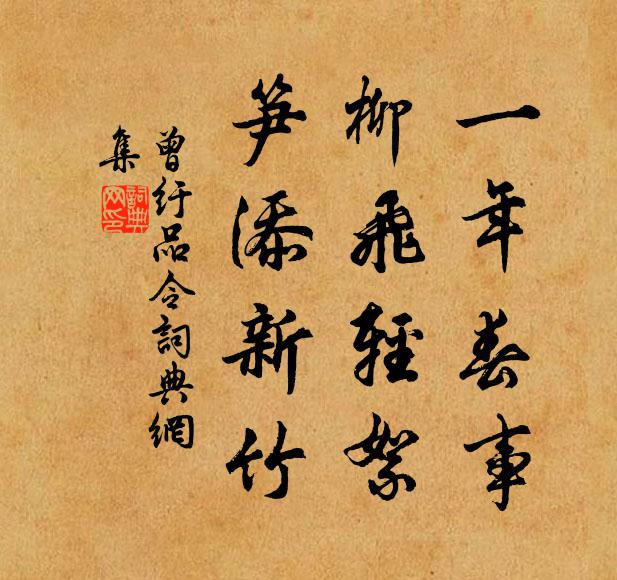 一年春事
柳飛輕絮
笋添新竹
曾紆品令詞典網
集
詞典
网印